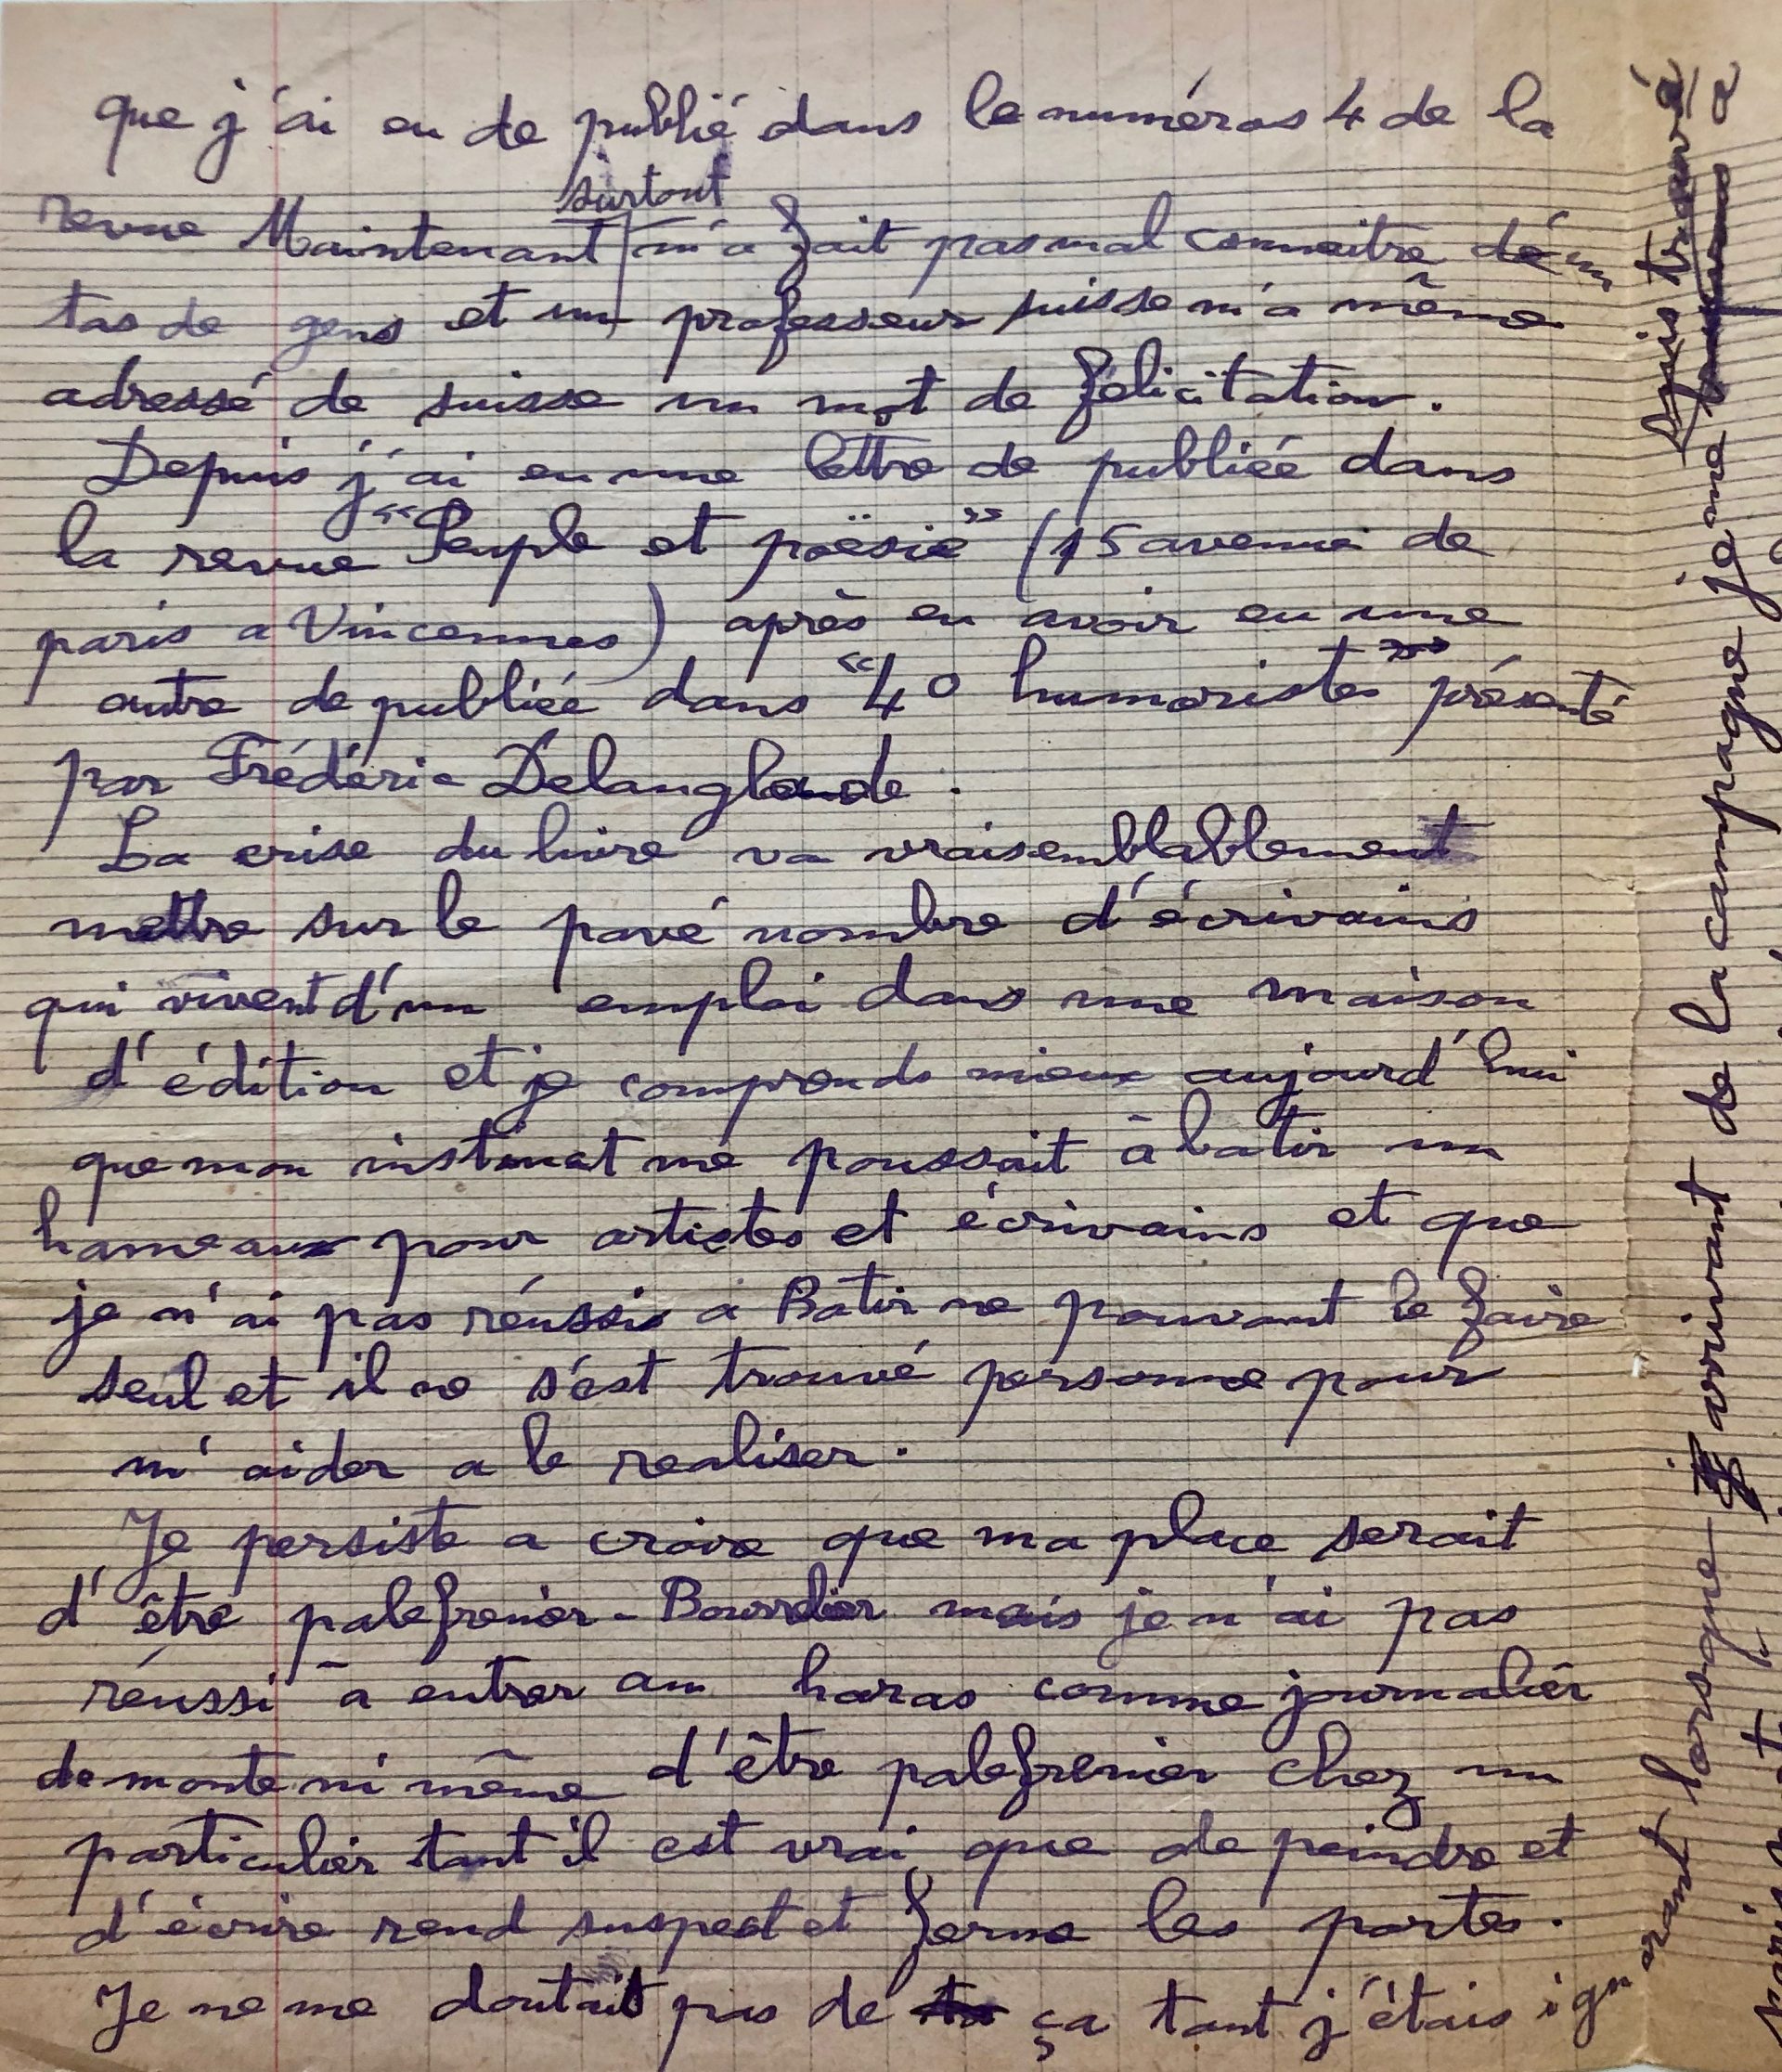 que j'ai eu de publié dans le numéros 4 de la
surtout
revue Maintenant m'a fait pas mal connaitre dé un
tas de gens et un professeur suisse m'a même
adressé de suisse un mot de félicitation.
Depuis j'ai eu une lettre de publiée dans
la revue "Peuple et poësie" (15 avenue de
paris a Vincennes) après en avoir eu une
autre de publiée dans "40 humoristes" présenté
par Frédéric Delanglade.
La crise du livre va vraisemblablablement
mettre sur le pavé nombre d'écrivains
qui vivent d'un emploi dans une maison
d'édition et je comprends mieux aujourd'hui
que mon instinct me poussait à batir un
hameaux pour artistes et écrivains et que
je n'ai pas réussis a Batir ne pouvant le faire
seul et il ne s'est trouvé personne pour
m'aider a le realiser.
Je persiste a croire que ma place serait
d'être palefrenier - Bourrelier mais je n'ai pas
réussi à entrer au haras comme journalier
de monte ni même d'être palefrenier chez un
particulier tant il est vrai que de peindre et
d'écrire rend suspect et ferme les portes.
Je ne me doutait pas de ça tant j'étais ign
orant lorsque arrivant de la campagne je me suis trouvé a